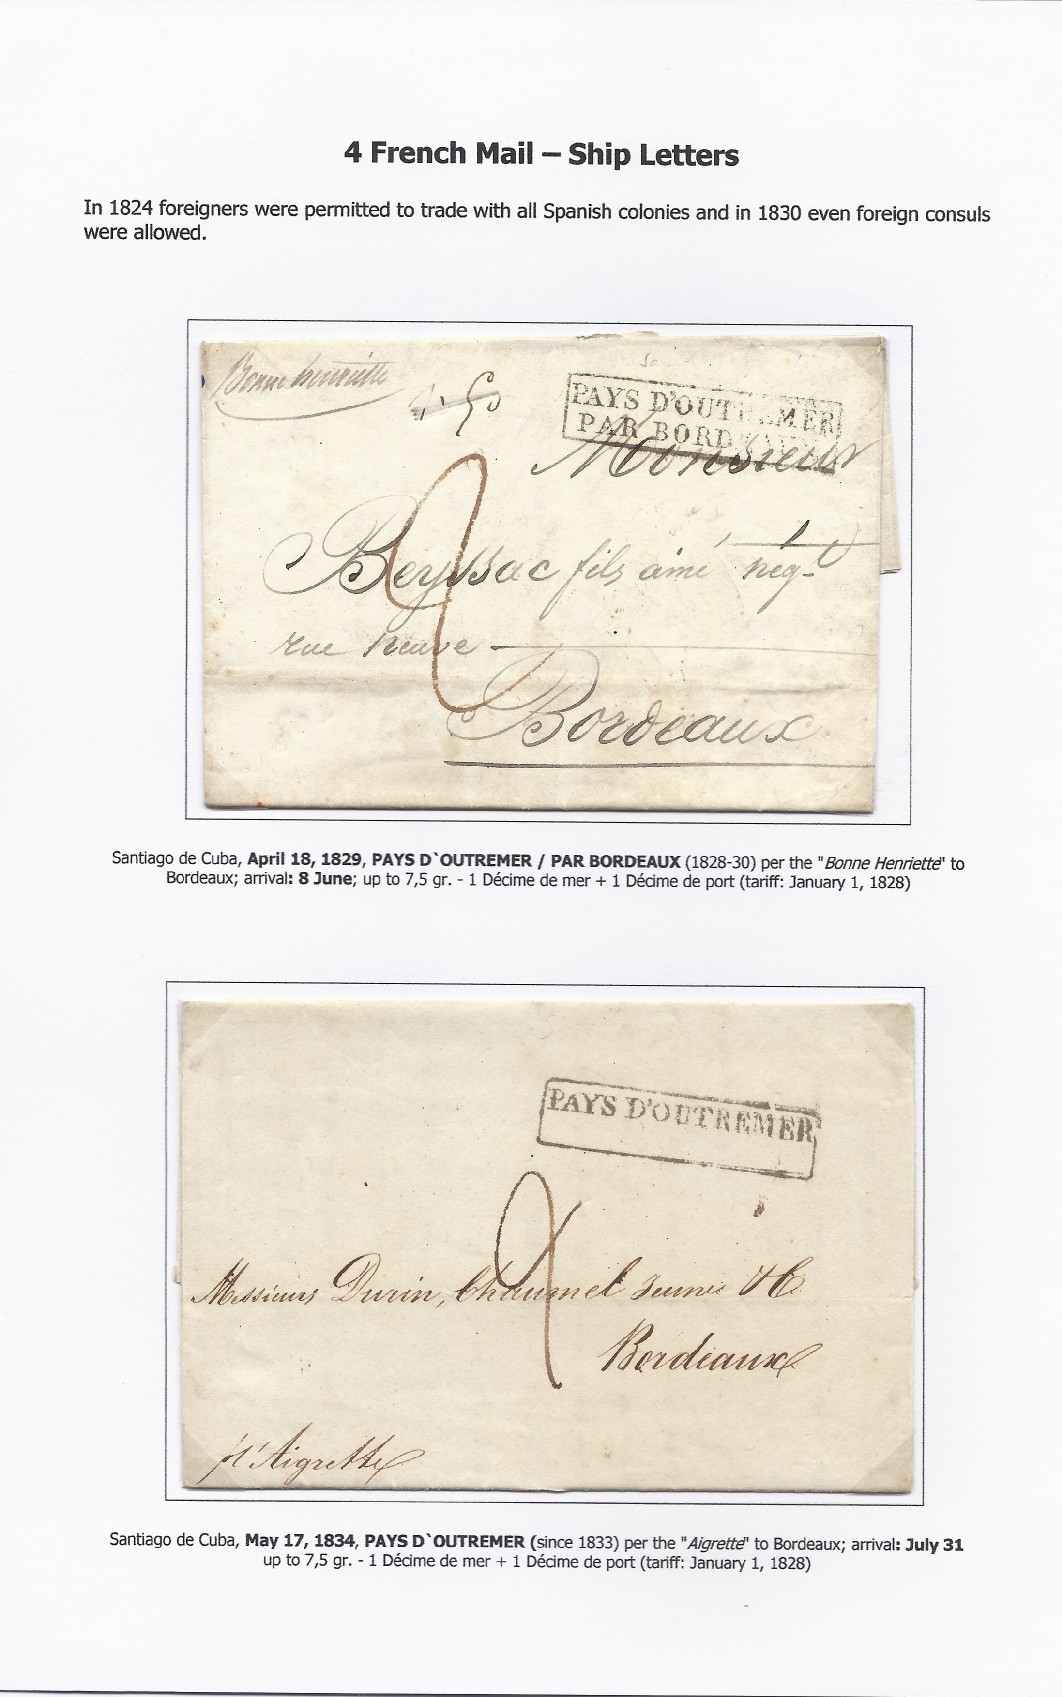 4 French Mail – Ship Letters
In 1824 foreigners were permitted to trade with all Spanish colonies and in 1830 even foreign consuls
were allowed.
Bonne henriette
PAYS D'OUTREMER
PAR BORDEAUX
Monsieur
Beyssac fils ainé nég-t
rue neuve
Bordeaux
2
Santiago de Cuba, April 18, 1829, PAYS D`OUTREMER / PAR BORDEAUX (1828-30) per the "Bonne Henriette" to
Bordeaux; arrival: 8 June; up to 7,5 gr. - 1 Décime de mer + 1 Décime de port (tariff: January 1, 1828)
PAYS D'OUTREMER
2
Messieurs Durin, Chaumel Jeune & C
Bordeaux
p l'Aigrette
Santiago de Cuba, May 17, 1834, PAYS D`OUTREMER (since 1833) per the "Aigrette" to Bordeaux; arrival: July 31
up to 7,5 gr. - 1 Décime de mer + 1 Décime de port (tariff: January 1, 1828)